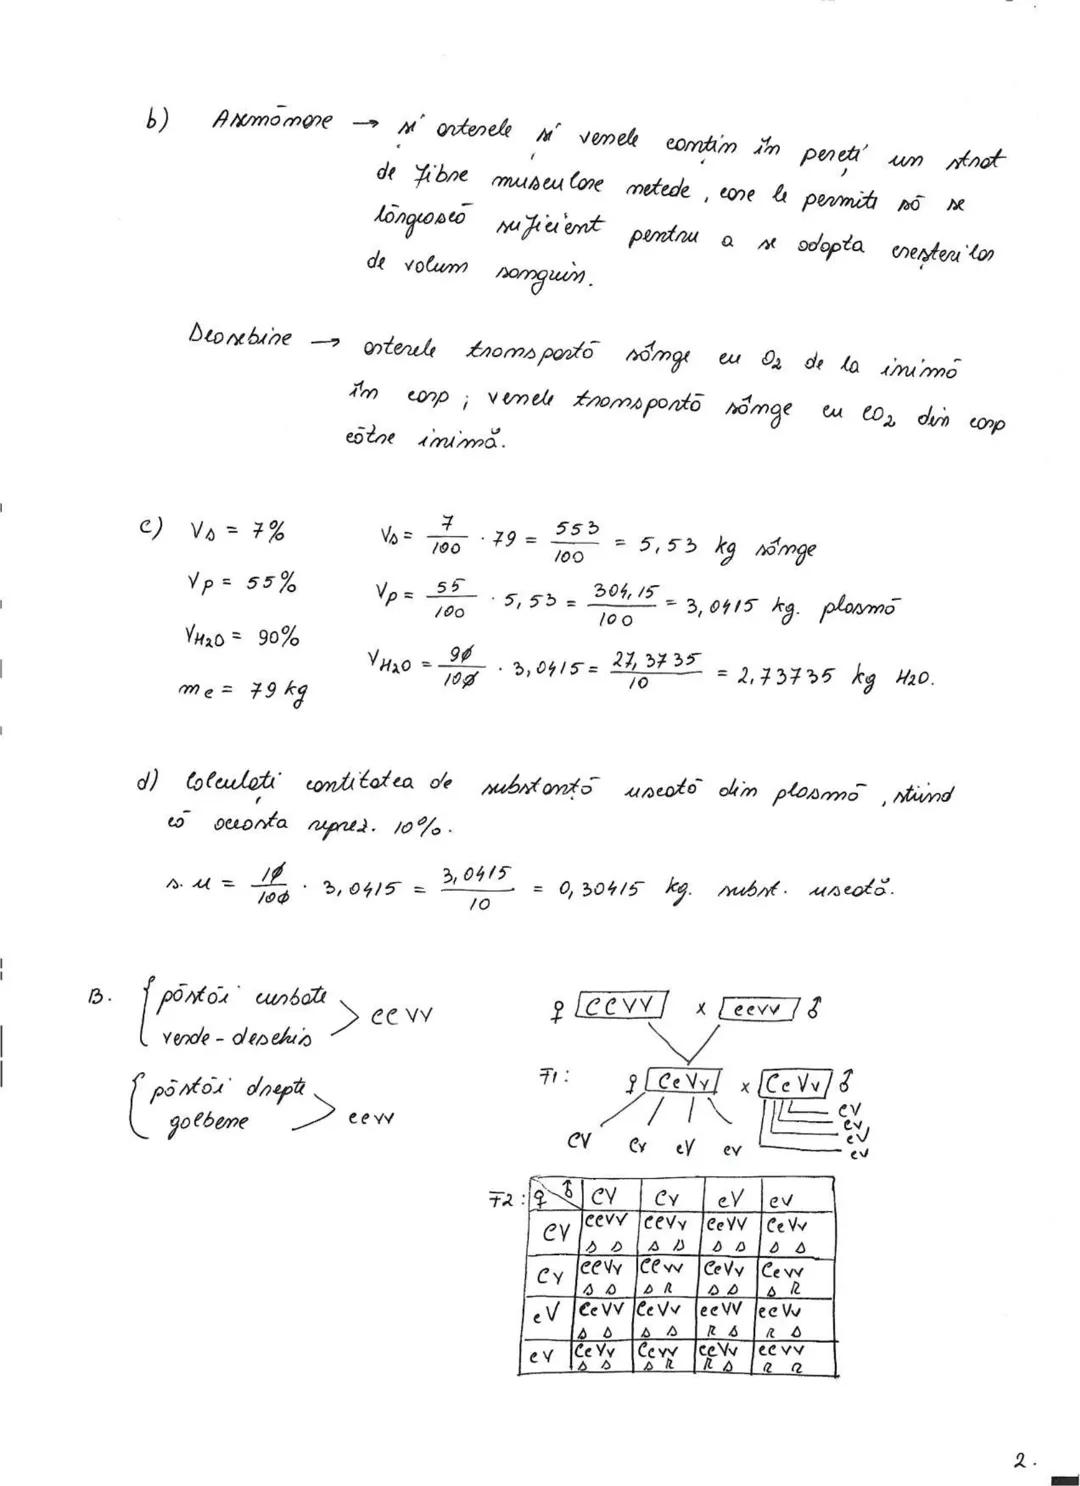 b) Asemănare → și arterele și venele conțin în pereți un strat
de fibre musculare netede, care le permite să se
lărgească suficient pentru a se adapta creșterilor
de volum sanguin.
Deosebire → arterele transportă sânge cu O2 de la inimă
în corp; venele transportă sânge cu CO2 din corp
către inimă.
c) Vs = 7% Vs = 7/100 · 79 = 553/100 = 5,53 kg sânge
Vp = 55% Vp = 55/100 · 5,53 = 304,15/100 = 3,0415 kg. plasmă
VH2O = 90% VH2O = 90/100 · 3,0415 = 27,3735/10 = 2,73735 kg H2O.
me = 79 kg
d) Calculați cantitatea de substanță uscată din plasmă, știind
că aceasta reprez. 10%.
s.u = 10/100 · 3,0415 = 3,0415/10 = 0,30415 kg. subst. uscată.
B. păstăi curbate
verde-deschis > CCVV
păstăi drepte
galbene > ccvv
♀ CCVV x ccvv ♂
F1: ♀ CcVv x CcVv ♂
CV Cv cV cv
CV
Cv
cV
cv
F2: ♀ ♂ CV Cv cV cv
CV CCVV CCVv CcVV CcVv
D D D D D D D D
Cv CCVv CCvv CcVv Ccvv
D D D R D D D R
cV CcVV CcVv ccVV ccVv
D D D D R D R D
cv CcVv Ccvv ccVv ccvv
D D D R R D R R
2.